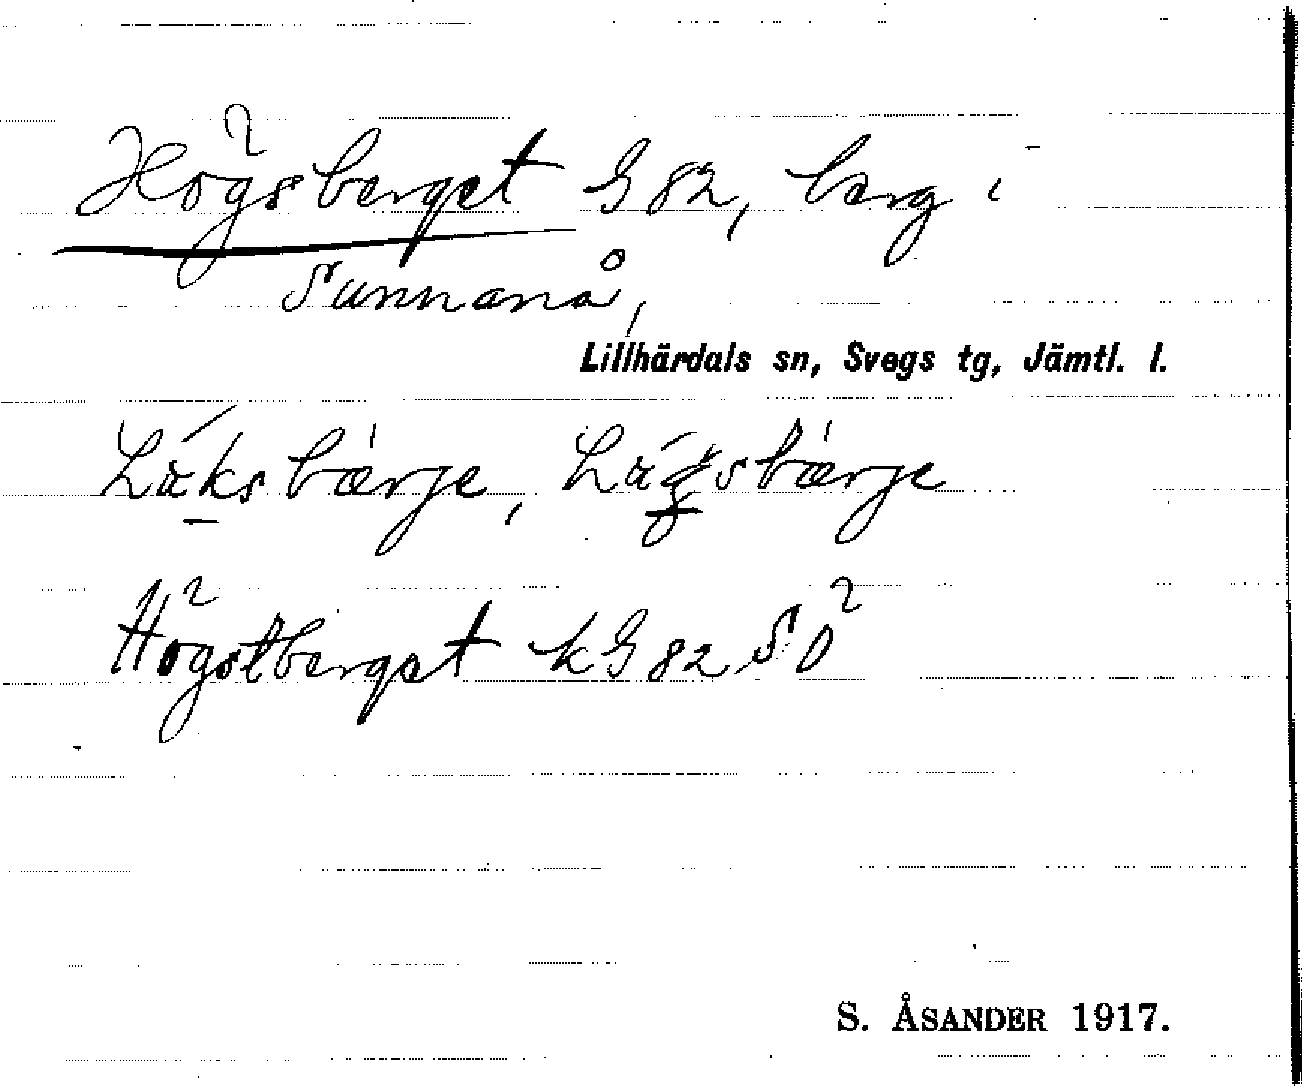 Högsberget G 82, berg i
Sunnanå,
Lillhärdals sn, Svegs tg, Jämtl. l.
Läksbærje, Lägsbærje
Högstberget kG 82 SO
S. ÅSANDER 1917.